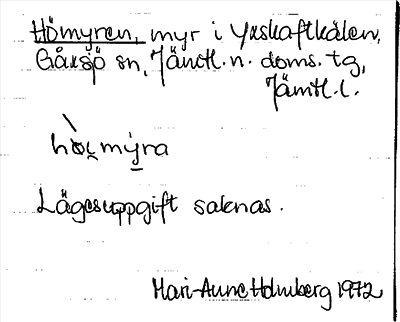 Hömyren, myr i Yxskaftkälen,
Gåxsjö sn, Jämtl. n. doms. tg,
Jämtl. l.
Lägesuppgift saknas.
Mari-Anne Holmberg 1972